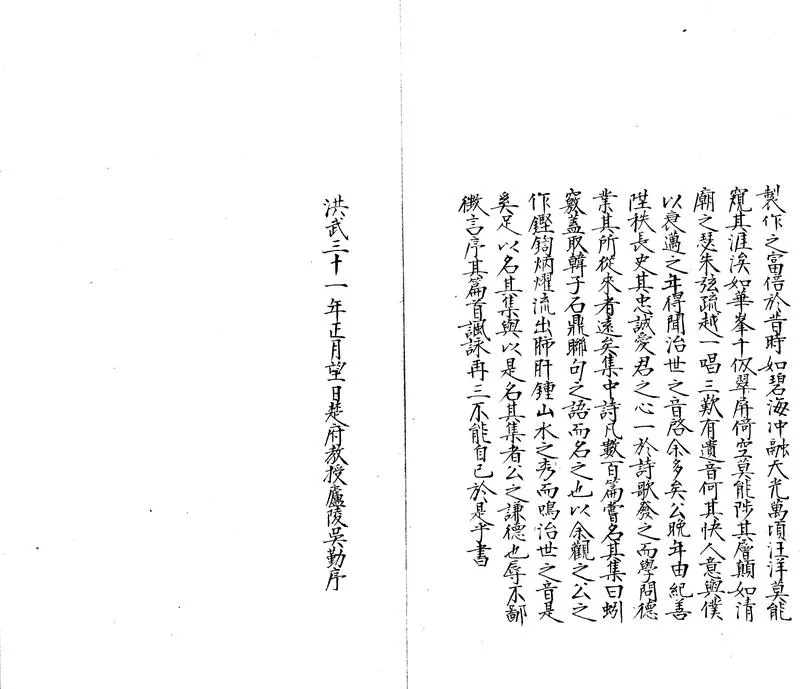 製作之富倍於昔時如碧海冲融天光萬頃汪洋莫能
窺其涯涘如華峯千仭翠屏倚空莫能陟其層顛如清
廟之瑟朱弦疏越一唱三歎有遺音何其快人意與僕
以衰邁之年得聞治世之音啓余多矣公晩年由紀善
陞秩長史其忠誠愛君之心一於詩歌發之而學問德
業其所從來者遠矣集中詩凡數百篇嘗名其集曰蚓
竅蓋取韓子石鼎聯句之語而名之也以余觀之公之
作鏗鍧炳燿流出肺肝鍾山水之秀而鳴治世之音是
奚足以名其集與以是名其集者公之謙德也辱不鄙
徴言序其篇首諷詠再三不能自已於是乎書
洪武三十一年正月望日楚府教授廬陵吳勤序